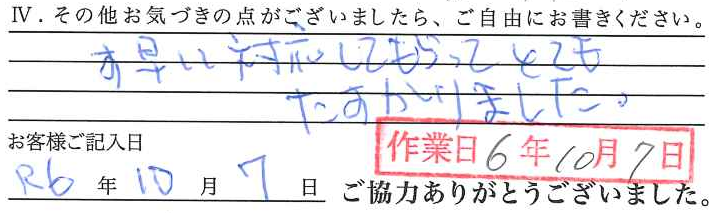 Ⅳ．その他お気づきの点がございましたら、ご自由にお書きください。
お早い対応してもらってとても
たすかりました。
お客様ご記入日
作業日6年10月7日
R6年10月7日
ご協力ありがとうございました。